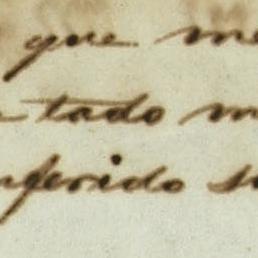 que me
tado m
ferido su